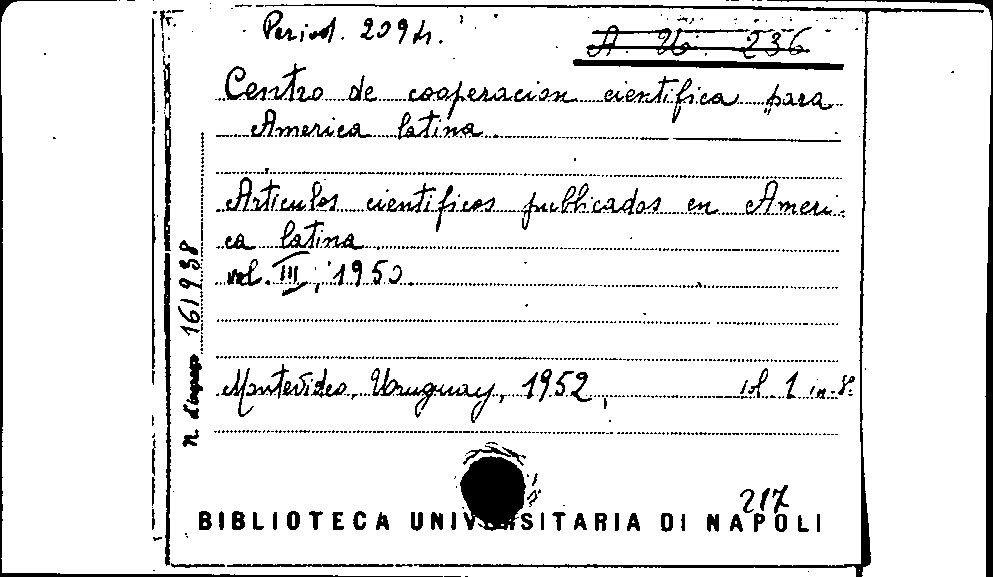 Period. 209 h.
A. U. 236
Centro de cooperacion cientifica para
America latina.
Articulos cientificos publicados en Ameri-
ca latina
vol. III, 1950.
Montevideo, Uruguay, 1952, vol. 1 in-8º
n. d'ingresso 161938
217
BIBLIOTECA UNIVERSITARIA DI NAPOLI